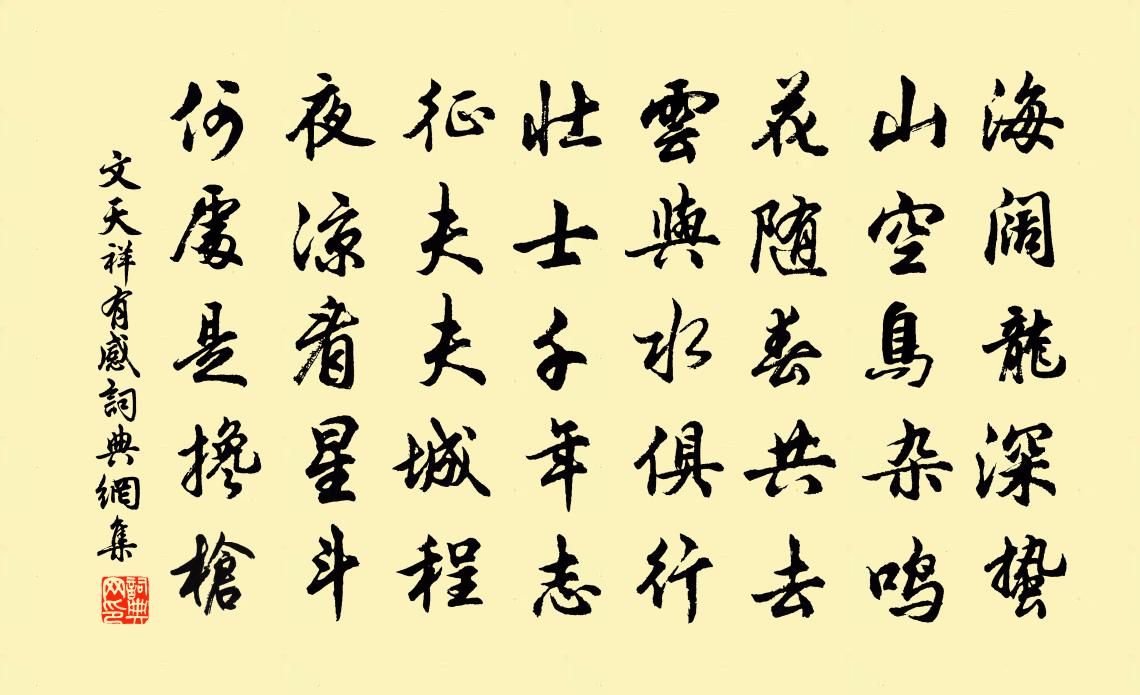 海阔龍深蛰
山空鳥杂鸣
花随春共去
雲與水俱行
壮士千年志
征夫夫城程
夜凉看星斗
何處是搀槍
文天祥有感詞典網集
詞典网印